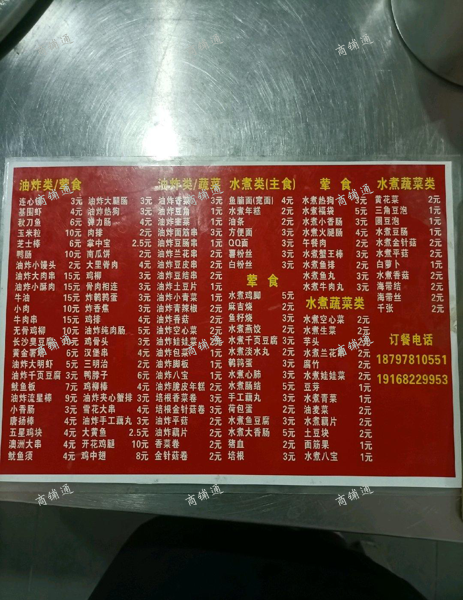 商铺通
商铺通
商铺通
油炸类/荤食
连心
基围虾 4元
秋刀鱼 6元
玉米粒 10元
芝士棒 6元
鸭肠 10元
油炸小馒头 2元
油炸大肉串
油炸小酥肉
牛油
小肉
牛肉串 15元
无骨鸡柳 10元
长沙臭豆腐
黄金薯
油炸大明虾 5元
油炸千页豆腐
鱿鱼板 7元
油炸流星棒 9元
小香肠 3元
唐扬棒 4元
五星鸡块 4元
澳洲大串 4元
鱿鱼须 4元
油炸大腿肠 3元
油炸热狗 3元
弹力肠 5元
肉排 2元
掌中宝 2.5元
南瓜饼 2元
大里脊骨肉 4元
鸡柳 3元
骨肉相连 3元
炸鹌鹑蛋
炸香蕉
鸡排
油炸纯肉肠 5元
鸡骨头 3元
汉堡串
三明治 2元
鸭脖子
鸡柳棒
油炸夹心蟹排 3元
雪花大串 4元
大黄鱼 2.5元
开花鸡腿 10元
鸡中翅 8元
油炸类/蔬菜
油炸香菜
油炸豆角 1元
油炸韭菜
油炸面筋
油炸豆肠串
油炸兰花串 2元
油炸豆皮串
油炸豆结串
油炸土豆片 1元
油炸小青菜 1元
油炸青辣椒 2元
油炸香菇 2元
油炸空心菜 2元
油炸娃娃菜
油炸包菜
油炸脚板 1元
油炸八宝 1元
油炸脆皮年糕 2元
培根香菜卷
培根金针菇卷
油炸手工藕丸 3元
油炸平菇 2元
油炸藕片 2元
香菜卷 2元
金针菇卷 2元
水煮类(主食)
鱼腩面(宽面) 4元
水煮年糕 2元
油条 2元
方便面 3元
QQ面 3元
薯粉丝 3元
白粉丝 3元
荤 食
水煮鸡脚 5元
麻吉烧 2元
鱼籽烧 2元
水煮燕饺 2元
水煮千页豆腐 3元
水煮淡水丸 2元
鹌鹑蛋 3元
水煮心肺 5元
水煮肠结 5元
手工藕丸 3元
荷包蛋 2元
水煮鱼豆腐 3元
水煮大香肠 5元
猪血 2元
培根 3元
荤 食
水煮热狗 3元
水煮福袋 5元
水煮小香肠 3元
水煮大腿肠 4元
午餐肉 2元
水煮蟹王棒 3元
水煮鱼排 2元
水煮鱼丸 3元
水煮牛肉丸 3元
水煮蔬菜类
水煮空心菜 2元
水煮生菜 2元
芋头 3元
水煮兰花干 2元
腐竹 2元
水煮娃娃菜 2元
豆芽 1元
水煮青菜 1元
油麦菜 2元
水煮藕片 2元
土豆块 2元
面筋果 1元
水煮八宝 1元
水煮蔬菜类
黄花菜 2元
三角豆泡 1元
圆豆泡 1元
白萝卜 1元
水煮豆肠 1元
水煮金针菇 2元
水煮平菇 2元
水煮香菇 2元
海带结 2元
海带丝 2元
千张 2元
订餐电话
18797810551
19168229953
商铺通
商铺通
商铺通
商铺通
商铺通
商铺通